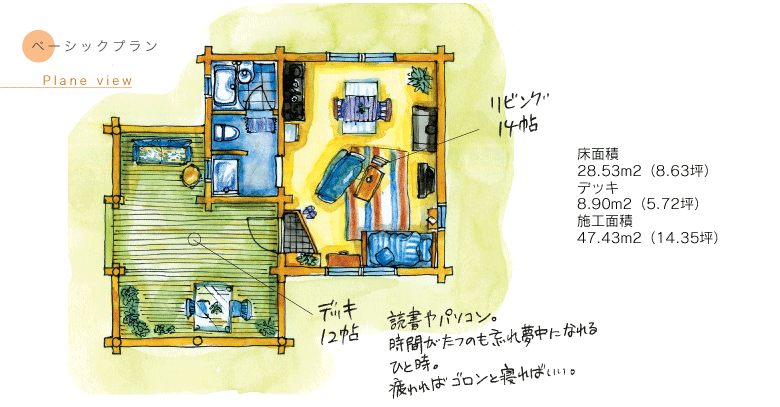 ベーシックプラン
Plane view
リビング
14帖
床面積
28.53m2（8.63坪）
デッキ
8.90m2（5.72坪）
施工面積
47.43m2（14.35坪）
デッキ
12帖
読書やパソコン。
時間がたつのも忘れ夢中になれる
ひと時。
疲れればゴロンと寝ればいい。